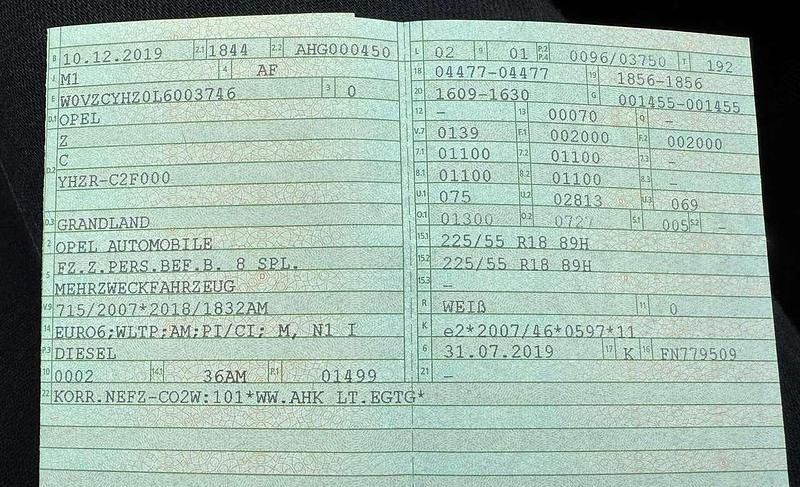 B 10.12.2019 2.1 1844 2.2 AHG000450
J M1 4 AF
E W0VZCYHZ0L6003746 3 0
D.1 OPEL
Z
C
D.2 YHZR-C2F000
D.3 GRANDLAND
2 OPEL AUTOMOBILE
5 FZ.Z.PERS.BEF.B. 8 SPL.
MEHRZWECKFAHRZEUG
V.9 715/2007*2018/1832AM
14 EURO6;WLTP;AM;PI/CI; M, N1 I
P.3 DIESEL
10 0002 14.1 36AM P.1 01499
22 KORR.NEFZ-CO2W:101*WW.AHK LT.EGTG*
L 02 9 01 P.2 P.4 0096/03750 T 192
18 04477-04477 19 1856-1856
20 1609-1630 G 001455-001455
12 – 13 00070 Q –
V.7 0139 F.1 002000 F.2 002000
7.1 01100 7.2 01100 7.3 –
8.1 01100 8.2 01100 8.3 –
U.1 075 U.2 02813 U.3 069
O.1 01300 O.2 072? S.1 005 S.2 –
15.1 225/55 R18 89H
15.2 225/55 R18 89H
15.3 –
R WEIß 11 0
K e2*2007/46*0597*11
6 31.07.2019 17 K 16 FN779509
21 –